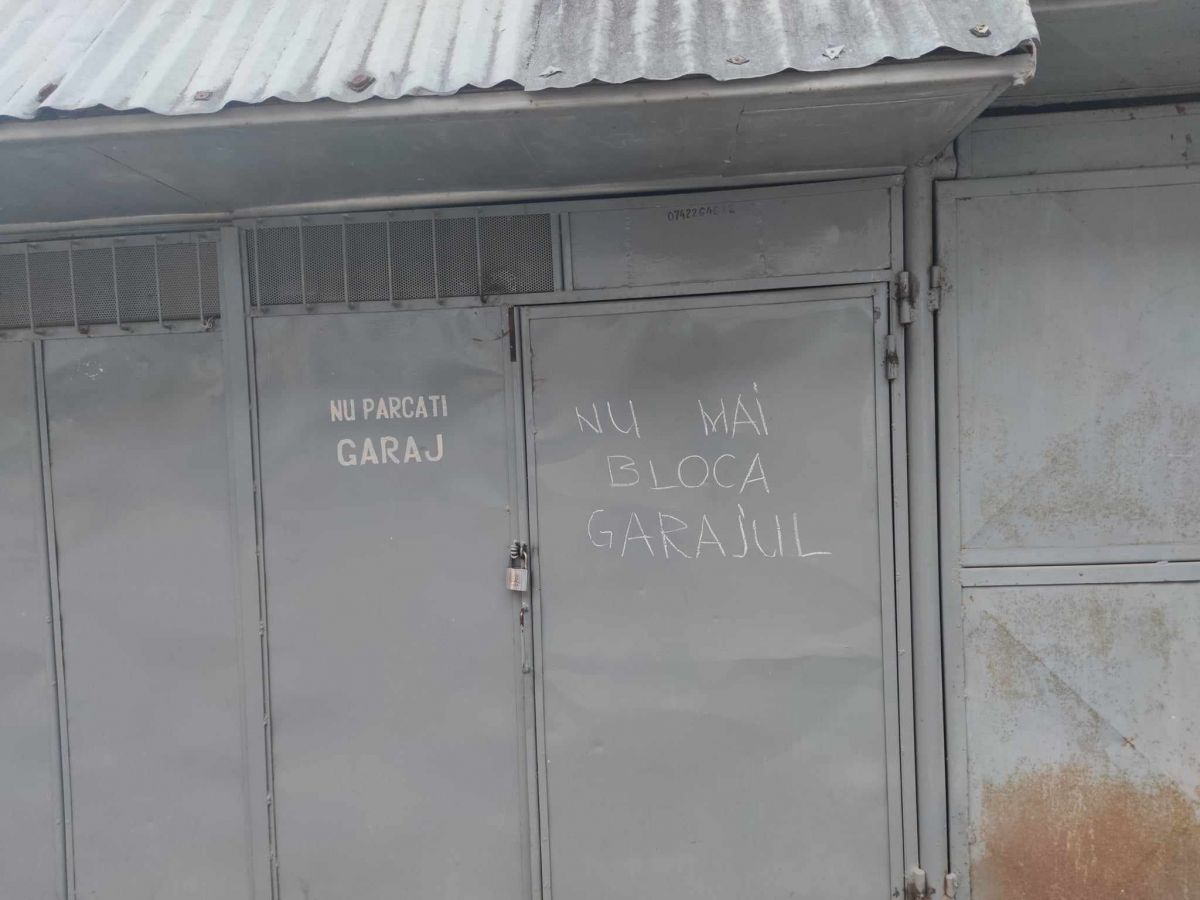 NU PARCATI
GARAJ
NU MAI
BLOCA
GARAJUL